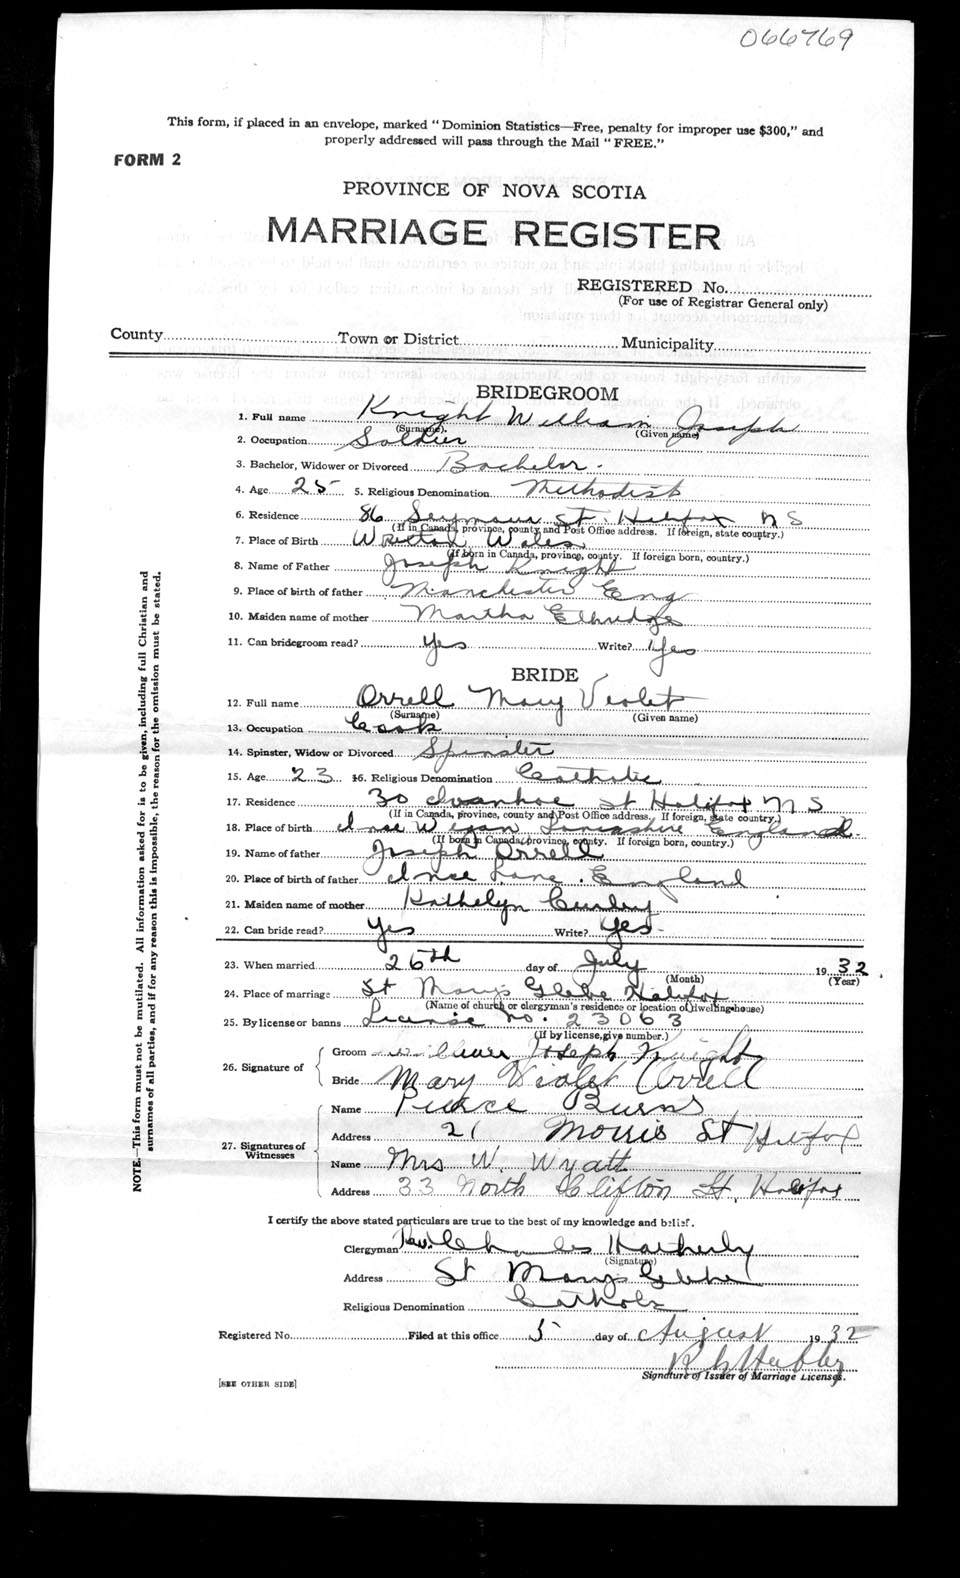 066769
This form, if placed in an envelope, marked "Dominion Statistics—Free, penalty for improper use $300," and
properly addressed will pass through the Mail "FREE."
FORM 2
PROVINCE OF NOVA SCOTIA
MARRIAGE REGISTER
REGISTERED No.
(For use of Registrar General only)
County Town or District Municipality
BRIDEGROOM
1. Full name Knight William Joseph
(Surname). (Given name)
2. Occupation Soldier
3. Bachelor, Widower or Divorced Bachelor.
4. Age 25 5. Religious Denomination Methodist
6. Residence 86 Seymour St Halifax NS
(If in Canada, province, county, and Post Office address. If foreign, state country.)
7. Place of Birth Wales
(If born in Canada, province, county. If foreign born, country.)
8. Name of Father Joseph Knight
9. Place of birth of father Manchester Eng
10. Maiden name of mother Martha Elhridge
11. Can bridegroom read? Yes Write? Yes
BRIDE
12. Full name Orrell Mary Violet
(Surname) (Given name)
13. Occupation Cook
14. Spinster, Widow or Divorced Spinster
15. Age 23 16. Religious Denomination Catholic
17. Residence 30 Ivanhoe St Halifax NS
(If in Canada, province, county and Post Office address. If foreign, state country.)
18. Place of birth Ince Wigan Lancashire England.
(If born in Canada, province, county. If foreign born, country.)
19. Name of father Joseph Orrell
20. Place of birth of father Ince Lanc. England
21. Maiden name of mother Kathelyn
22. Can bride read? Yes Write? Yes-
23. When married 26th day of July 1932
(Month) (Year)
24. Place of marriage St Marys Glebe Halifax
(Name of church or clergyman's residence or location of dwelling-house)
25. By license or banns License No. 23063
(If by license, give number.)
26. Signature of
Groom William Joseph Knight
Bride Mary Violet Orrell
27. Signatures of Witnesses
Name Pierce Burns
Address 21 Morris St Halifax
Name Mrs W. Wyatt
Address 33 North Clifton St, Halifax
I certify the above stated particulars are true to the best of my knowledge and belief.
Clergyman Rev. Charles Hatherly
(Signature)
Address St Marys Glebe
Religious Denomination Catholic
Registered No. Filed at this office 5 day of August 1932
Signature of Issuer of Marriage Licenses.
[SEE OTHER SIDE]
NOTE.—This form must not be mutilated. All information asked for is to be given, including full Christian and
surnames of all parties, and if for any reason this is impossible, the reason for the omission must be stated.